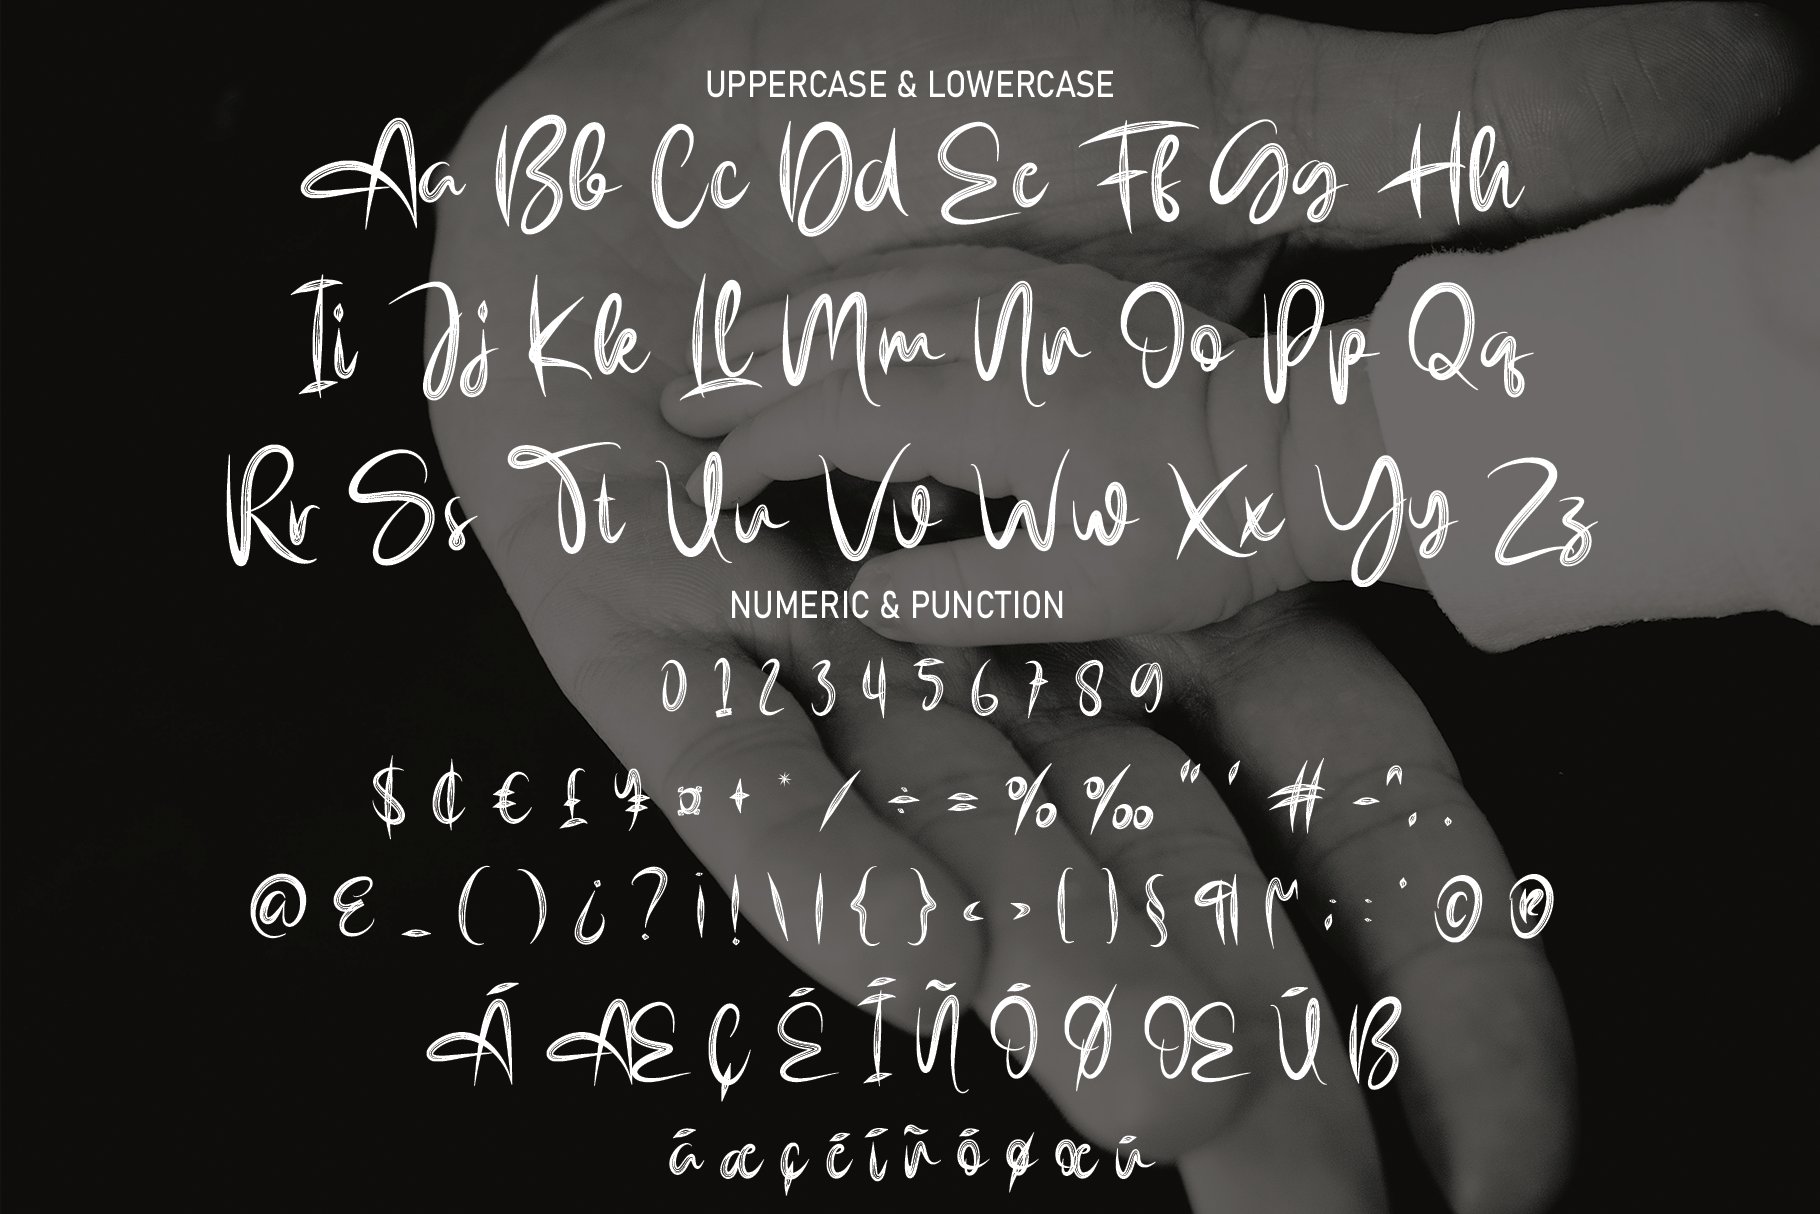 UPPERCASE & LOWERCASE
Aa Bb Cc Dd Ee Ff Gg Hh
Ii Jj Kk Ll Mm Nn Oo Pp Qq
Rr Ss Tt Uu Vv Ww Xx Yy Zz
NUMERIC & PUNCTION
0 1 2 3 4 5 6 7 8 9
$ ¢ € £ ¥ ¤ + * / ÷ = % ‰ " ' # - ^ , .
@ & _ ( ) ¿ ? ¡ ! \ | { } < > [ ] § ¶ µ ; : · © ®
Á Æ Ç É Í Ñ Ó Ø Œ Ú ß
á æ ç é í ñ ó ø œ ú